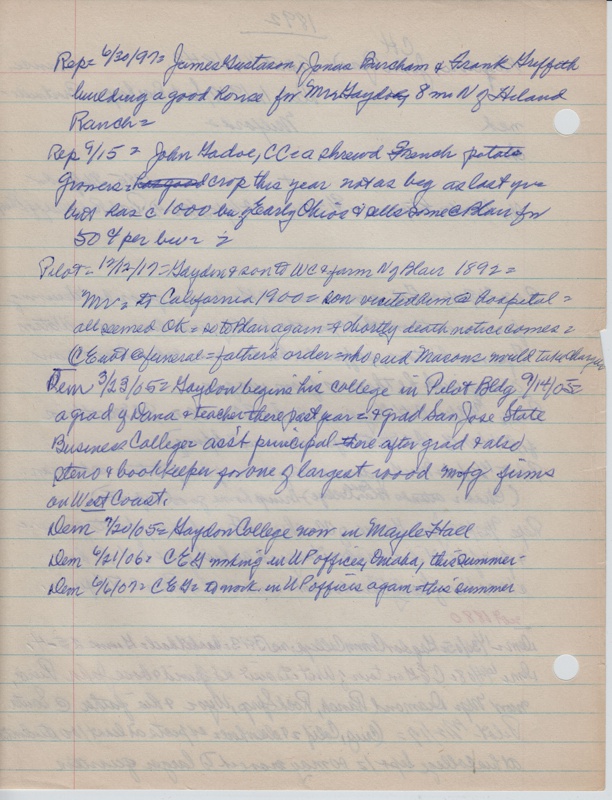 Rep = 6/30/97 = James Gustason, Jonas Bursham & Frank Griffith
building a good house for Mr Gaydon, 8 mi N of Hiland
Ranch =
Rep 9/15 = John Gadoe, CC = a shrewd French potato
growers = crop this year not as big as last yr
but has c 1000 bu of Early Ohio's & sells some @ Blair for
50 ¢ per bu =
Pilot = 12/12/17 = Gaydon & son to WC & farm N of Blair 1892 =
Mr = to California 1900 = son visited him @ hospital =
all seemed OK = so to Blair again & shortly death notice comes =
CE not @ funeral = father's order = who said Masons would take charge
Dem 3/23/05 = Gaydon begins his college in Pilot Bldg 9/14/05 =
a grad of Dana & teacher there past year = & grad San Jose State
Business College & ass't principal there after grad & also
steno & bookkeeper for one of largest wood mfg firms
on West Coast.
Dem 7/20/05 = Gaydon College now in Mayle Hall
Dem 6/21/06 = C E G working in UP offices, Omaha, this summer -
Dem 6/6/07 = C E G = to work in UP offices again this summer